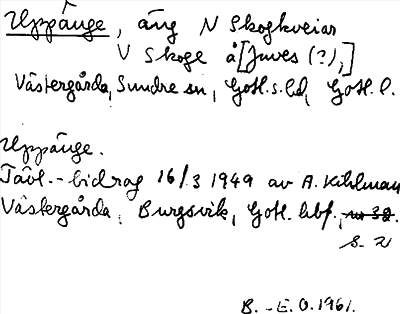 Uppänge, äng N Skogkveiar
V Skoge å [Juves (?),]
Västergårda, Sundre sn, Gotl. s. hd, Gotl. l.
Uppänge.
Tävl.-bidrag 16/3 1949 av A. Kihlman
Västergårda, Burgsvik, Gotl. hbf., nr 38.
s. 21
B.-E.O. 1961.